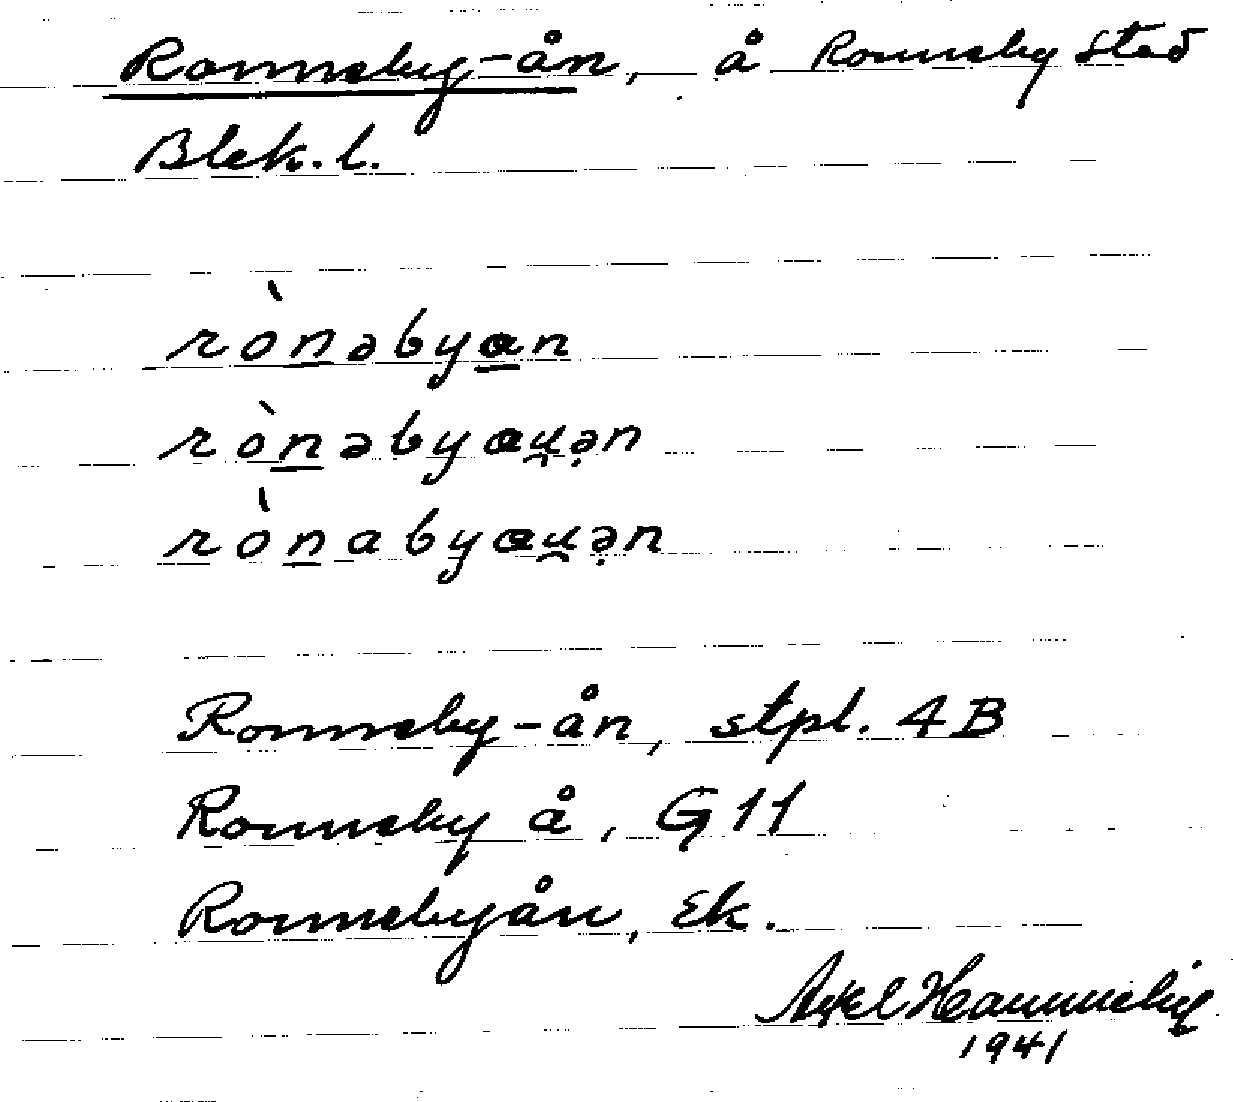 Ronneby-ån, å Ronneby stad
Blek. l.
rònəbyan
rònəbyaɯə̣n
rònabyaɯə̣n
Ronneby-ån, stpl. 4B
Ronneby å, G11
Ronnebyån, Ek.
Axel
1941